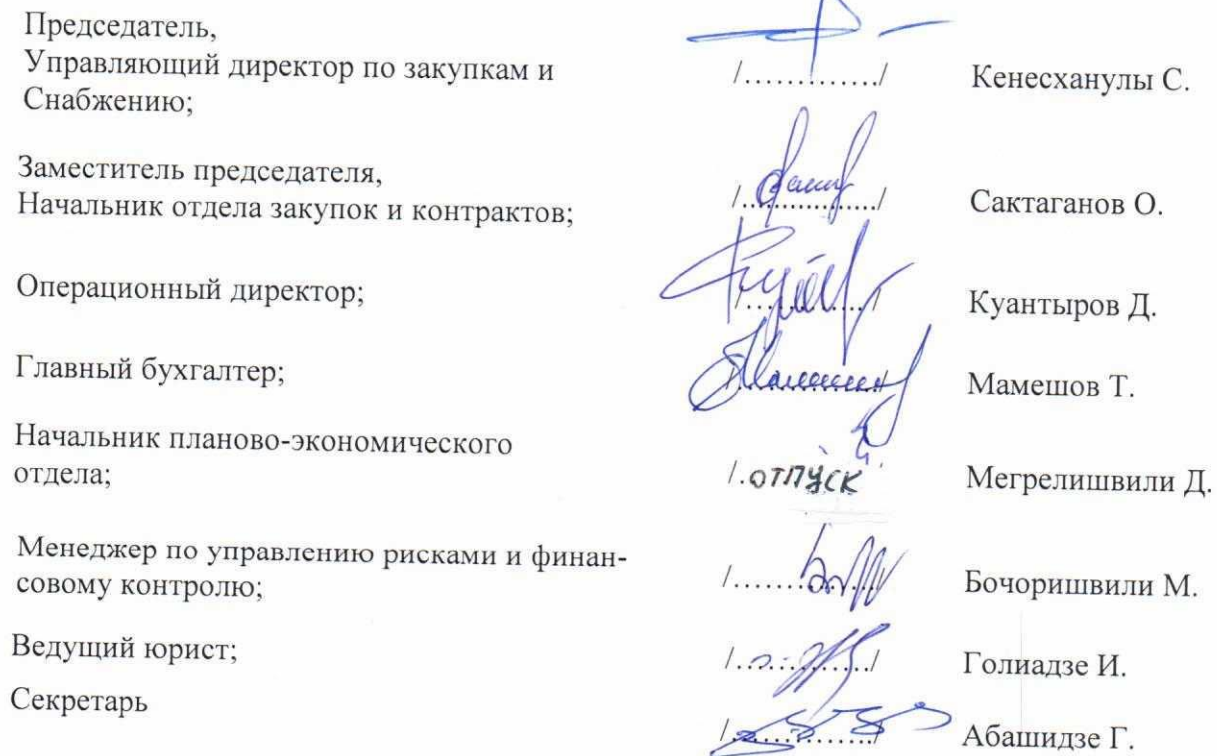 Председатель,
Управляющий директор по закупкам и
Снабжению;
/............./ Кенесханулы С.
Заместитель председателя,
Начальник отдела закупок и контрактов;
/................/ Сактаганов О.
Операционный директор;
/............../ Куантыров Д.
Главный бухгалтер;
/............../ Мамешов Т.
Начальник планово-экономического
отдела;
/.отпуск Мегрелишвили Д.
Менеджер по управлению рисками и финан-
совому контролю;
/............../ Бочоришвили М.
Ведущий юрист;
/............../ Голиадзе И.
Секретарь
/............../ Абашидзе Г.